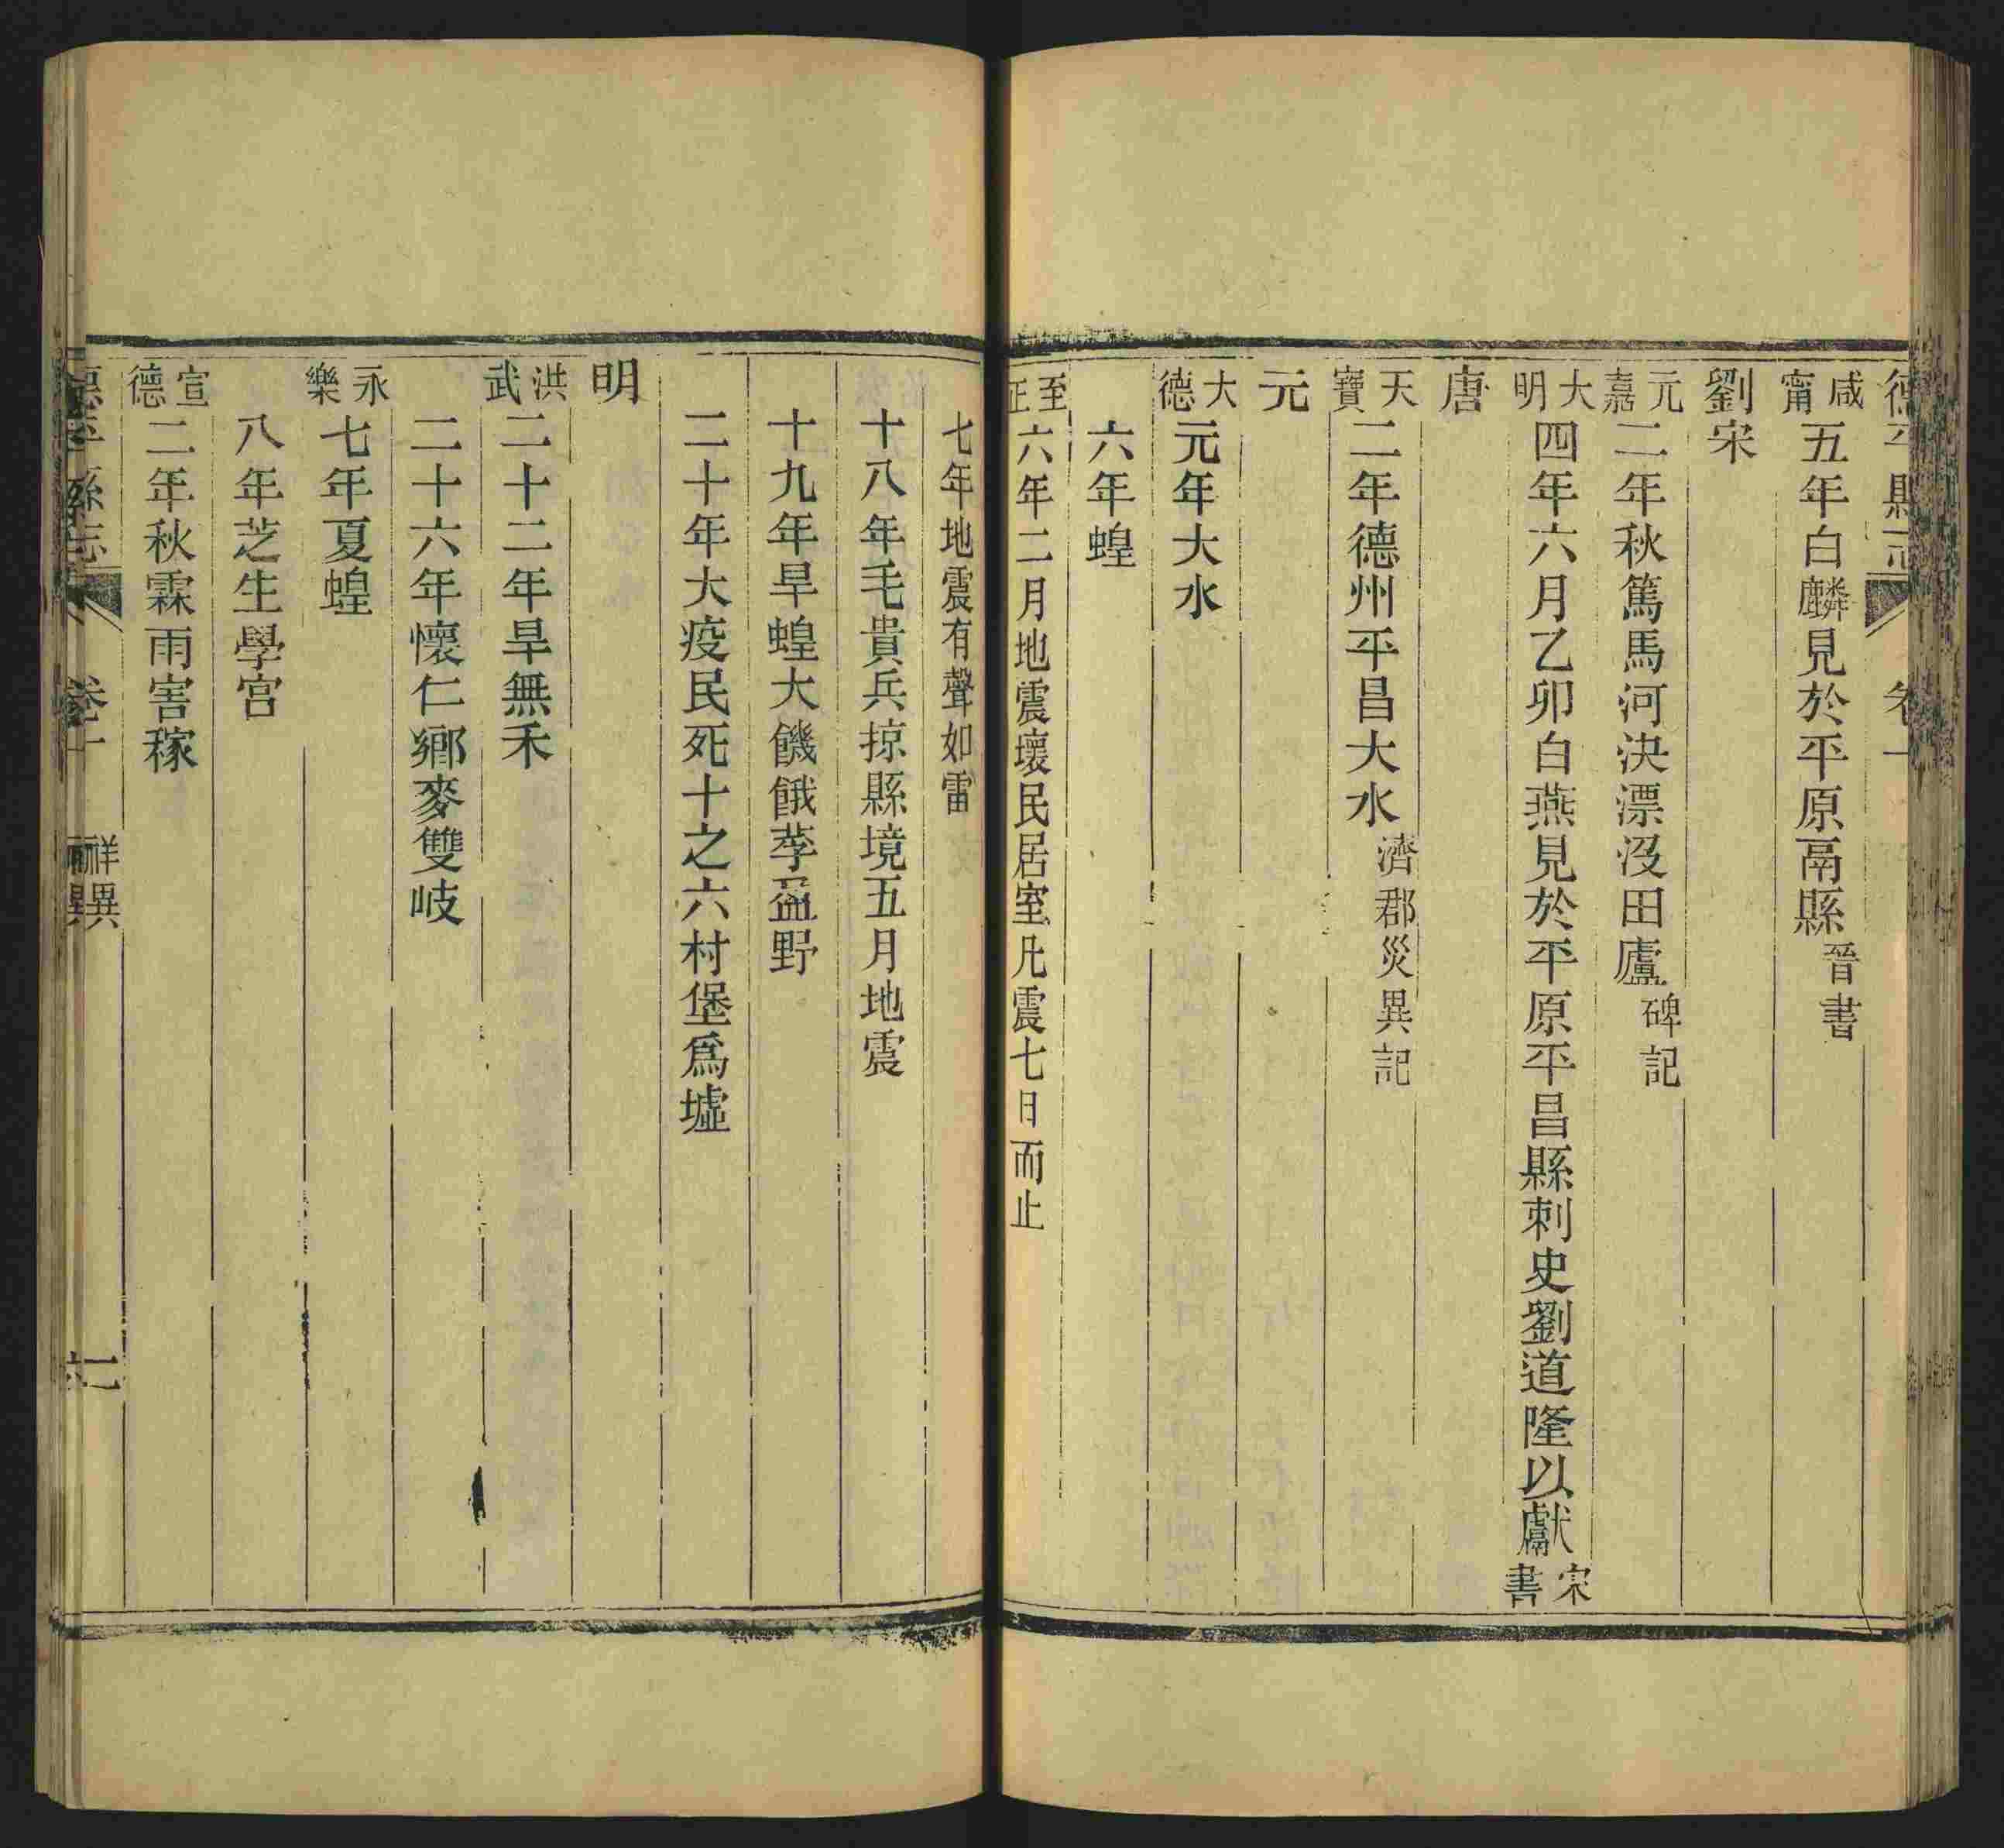 德平縣志 卷十
咸甯五年白麟見於平原鬲縣晉書
劉宋
元嘉二年秋篤馬河決漂沒田廬碑記
大明四年六月乙卯白燕見於平原平昌縣刺史劉道隆以獻宋書
唐
天寶二年德州平昌大水濟郡災異記
元
大德元年大水
六年蝗
至正六年二月地震壞民居室凡震七日而止
七年地震有聲如雷
十八年毛貴兵掠縣境五月地震
十九年旱蝗大饑餓莩盈野
二十年大疫民死十之六村堡爲墟
明
洪武二十二年旱無禾
二十六年懷仁鄉麥雙岐
永樂七年夏蝗
八年芝生學宮
宣德二年秋霖雨害稼
德平縣志 卷十 祥異